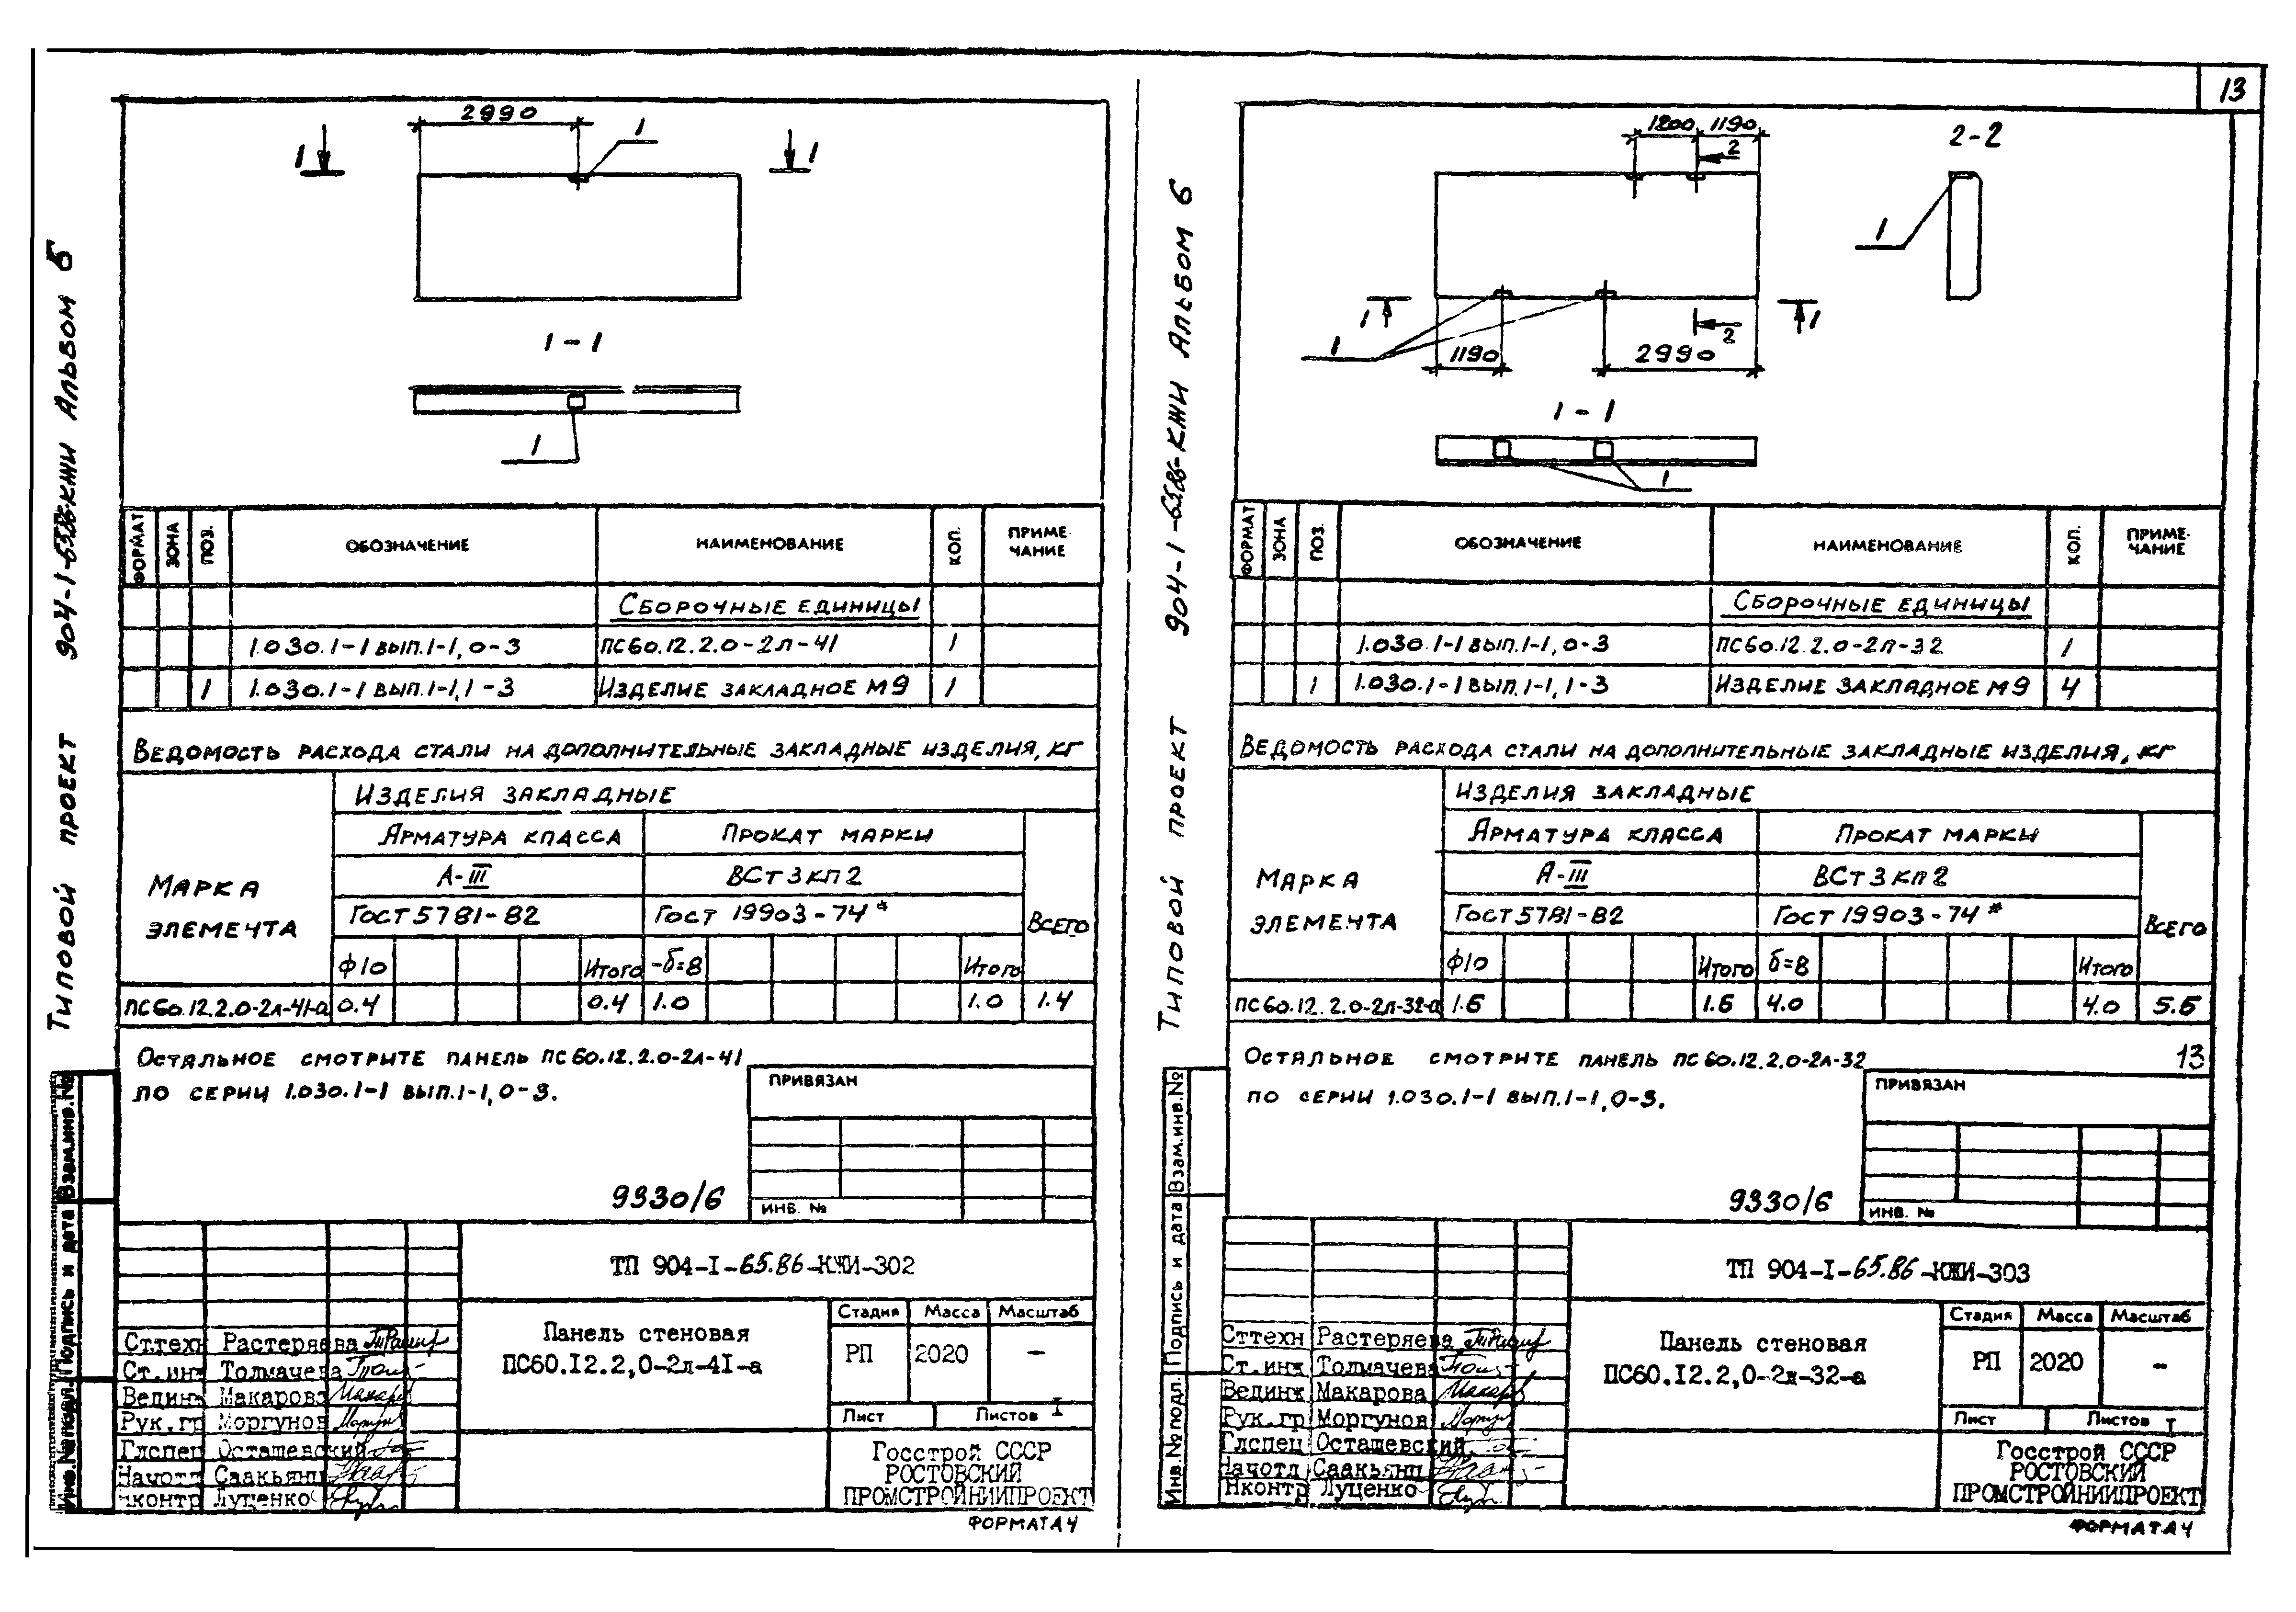 13
2990
1
1
1
1-1
1
ФОРМАТ ЗОНА ПОЗ. ОБОЗНАЧЕНИЕ НАИМЕНОВАНИЕ КОЛ. ПРИМЕ-ЧАНИЕ
СБОРОЧНЫЕ ЕДИНИЦЫ
1.030.1-1 ВЫП.1-1, 0-3 ПС60.12.2.0-2Л-41 1
1 1.030.1-1 ВЫП.1-1, 1-3 ИЗДЕЛИЕ ЗАКЛАДНОЕ М9 1
ВЕДОМОСТЬ РАСХОДА СТАЛИ НА ДОПОЛНИТЕЛЬНЫЕ ЗАКЛАДНЫЕ ИЗДЕЛИЯ, КГ
ИЗДЕЛИЯ ЗАКЛАДНЫЕ
АРМАТУРА КЛАССА ПРОКАТ МАРКИ
А-III ВСт3кп2
МАРКА ЭЛЕМЕНТА
ГОСТ 5781-82 ГОСТ 19903-74*
ВСЕГО
ф10 Итого -δ=8 Итого
ПС60.12.2.0-2Л-41-а 0.4 0.4 1.0 1.0 1.4
ОСТАЛЬНОЕ СМОТРИТЕ ПАНЕЛЬ ПС60.12.2.0-2Л-41
ПО СЕРИИ 1.030.1-1 ВЫП.1-1, 0-3.
ПРИВЯЗАН
9330/6
ИНВ. №
ТП 904-I-65.86-КЖИ-302
Панель стеновая
ПС60.I2.2,0-2л-4I-а
Стадия Масса Масштаб
РП 2020 –
Лист Листов I
Ст.техн Растеряева
Ст.инж Толмачева
Вединж Макарова
Рук.гр Моргунов
Глспец Осташевский
Начотд Саакьянц
Нконтр Луценко
Госстрой СССР
РОСТОВСКИЙ
ПРОМСТРОЙНИИПРОЕКТ
ФОРМАТ А4
ТИПОВОЙ ПРОЕКТ 904-1-65.86-КЖИ АЛЬБОМ 6
Инв.№подл. Подпись и дата Взам.инв.№
1200 1190
2
2-2
1
1
1
2
1
1190 2990
1-1
1
ФОРМАТ ЗОНА ПОЗ. ОБОЗНАЧЕНИЕ НАИМЕНОВАНИЕ КОЛ. ПРИМЕ-ЧАНИЕ
СБОРОЧНЫЕ ЕДИНИЦЫ
1.030.1-1 ВЫП.1-1, 0-3 ПС60.12.2.0-2Л-32 1
1 1.030.1-1 ВЫП.1-1, 1-3 ИЗДЕЛИЕ ЗАКЛАДНОЕ М9 4
ВЕДОМОСТЬ РАСХОДА СТАЛИ НА ДОПОЛНИТЕЛЬНЫЕ ЗАКЛАДНЫЕ ИЗДЕЛИЯ, КГ
ИЗДЕЛИЯ ЗАКЛАДНЫЕ
АРМАТУРА КЛАССА ПРОКАТ МАРКИ
А-III ВСт3кп2
МАРКА ЭЛЕМЕНТА
ГОСТ 5781-82 ГОСТ 19903-74*
ВСЕГО
ф10 Итого δ=8 Итого
ПС60.12.2.0-2Л-32-а 1.6 1.6 4.0 4.0 5.6
ОСТАЛЬНОЕ СМОТРИТЕ ПАНЕЛЬ ПС60.12.2.0-2Л-32
ПО СЕРИИ 1.030.1-1 ВЫП.1-1, 0-3.
13
ПРИВЯЗАН
9330/6
ИНВ. №
ТП 904-I-65.86-КЖИ-303
Панель стеновая
ПС60.I2.2,0-2л-32-а
Стадия Масса Масштаб
РП 2020 –
Лист Листов I
Сттехн Растеряева
Ст.инж Толмачева
Вединж Макарова
Рук.гр Моргунов
Глспец Осташевский
Начотд Саакьянц
Нконтр Луценко
Госстрой СССР
РОСТОВСКИЙ
ПРОМСТРОЙНИИПРОЕКТ
ФОРМАТ А4
ТИПОВОЙ ПРОЕКТ 904-1-65.86-КЖИ АЛЬБОМ 6
Инв.№подл. Подпись и дата Взам.инв.№